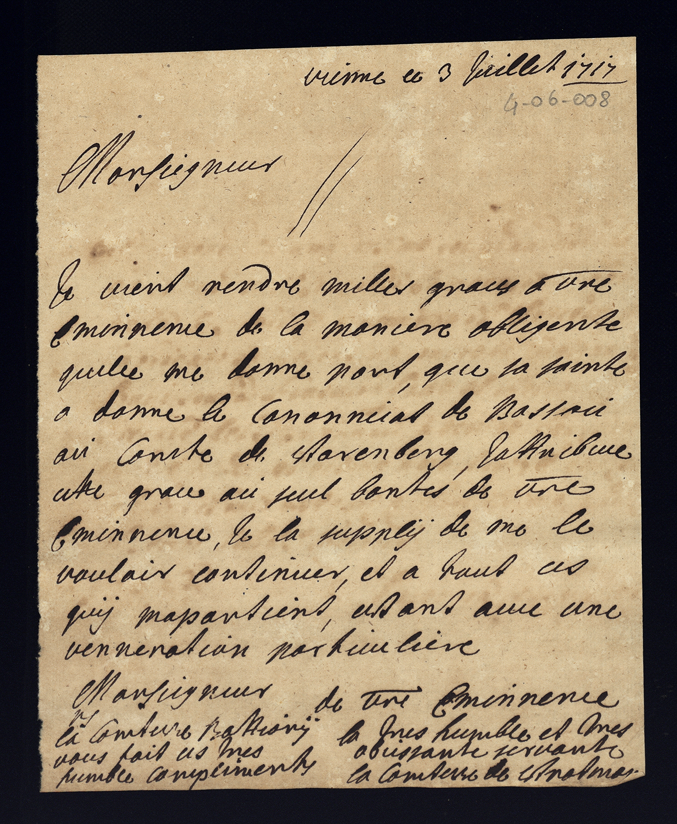 vienne ce 3 Juillet 1717
4-06-008
Monseigneur
Je vient rendre milles graces a vre
Eminnence de la maniere obligente
quelle me donne part, que sa sainte
a donne le Canonnicat de Passau
au Comte de Starenberg, Jattribue
cette grace au seul bontes de vre
Eminnence, Je la supplij de me le
vouloir continuer, et a tout ces
quij mapartient, estant avec une
venneration particuliere
Monseigneur
de vre Eminnence
la tres humble et tres
obeissante servante
la Comtesse de
la Comtesse
vous fait ces tres
humble Compliments